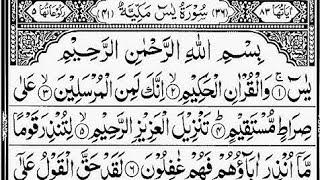 اٰیَاتُهَا ٨٣ (٣٦) سُوْرَةُ یٰسٓ مَكِّیَّةٌ (٤١) رُكُوْعَاتُهَا ٥
بِسْمِ اللّٰهِ الرَّحْمٰنِ الرَّحِیْمِ
یٰسٓ ۚ﴿١﴾ وَالْقُرْاٰنِ الْحَكِیْمِ ﴿٢﴾ اِنَّكَ لَمِنَ الْمُرْسَلِیْنَ ﴿٣﴾ عَلٰی
صِرَاطٍ مُّسْتَقِیْمٍ ﴿٤﴾ تَنْزِیْلَ الْعَزِیْزِ الرَّحِیْمِ ﴿٥﴾ لِتُنْذِرَ قَوْمًا
مَّاۤ اُنْذِرَ اٰبَآؤُهُمْ فَهُمْ غٰفِلُوْنَ ﴿٦﴾ لَقَدْ حَقَّ الْقَوْلُ عَلٰۤی